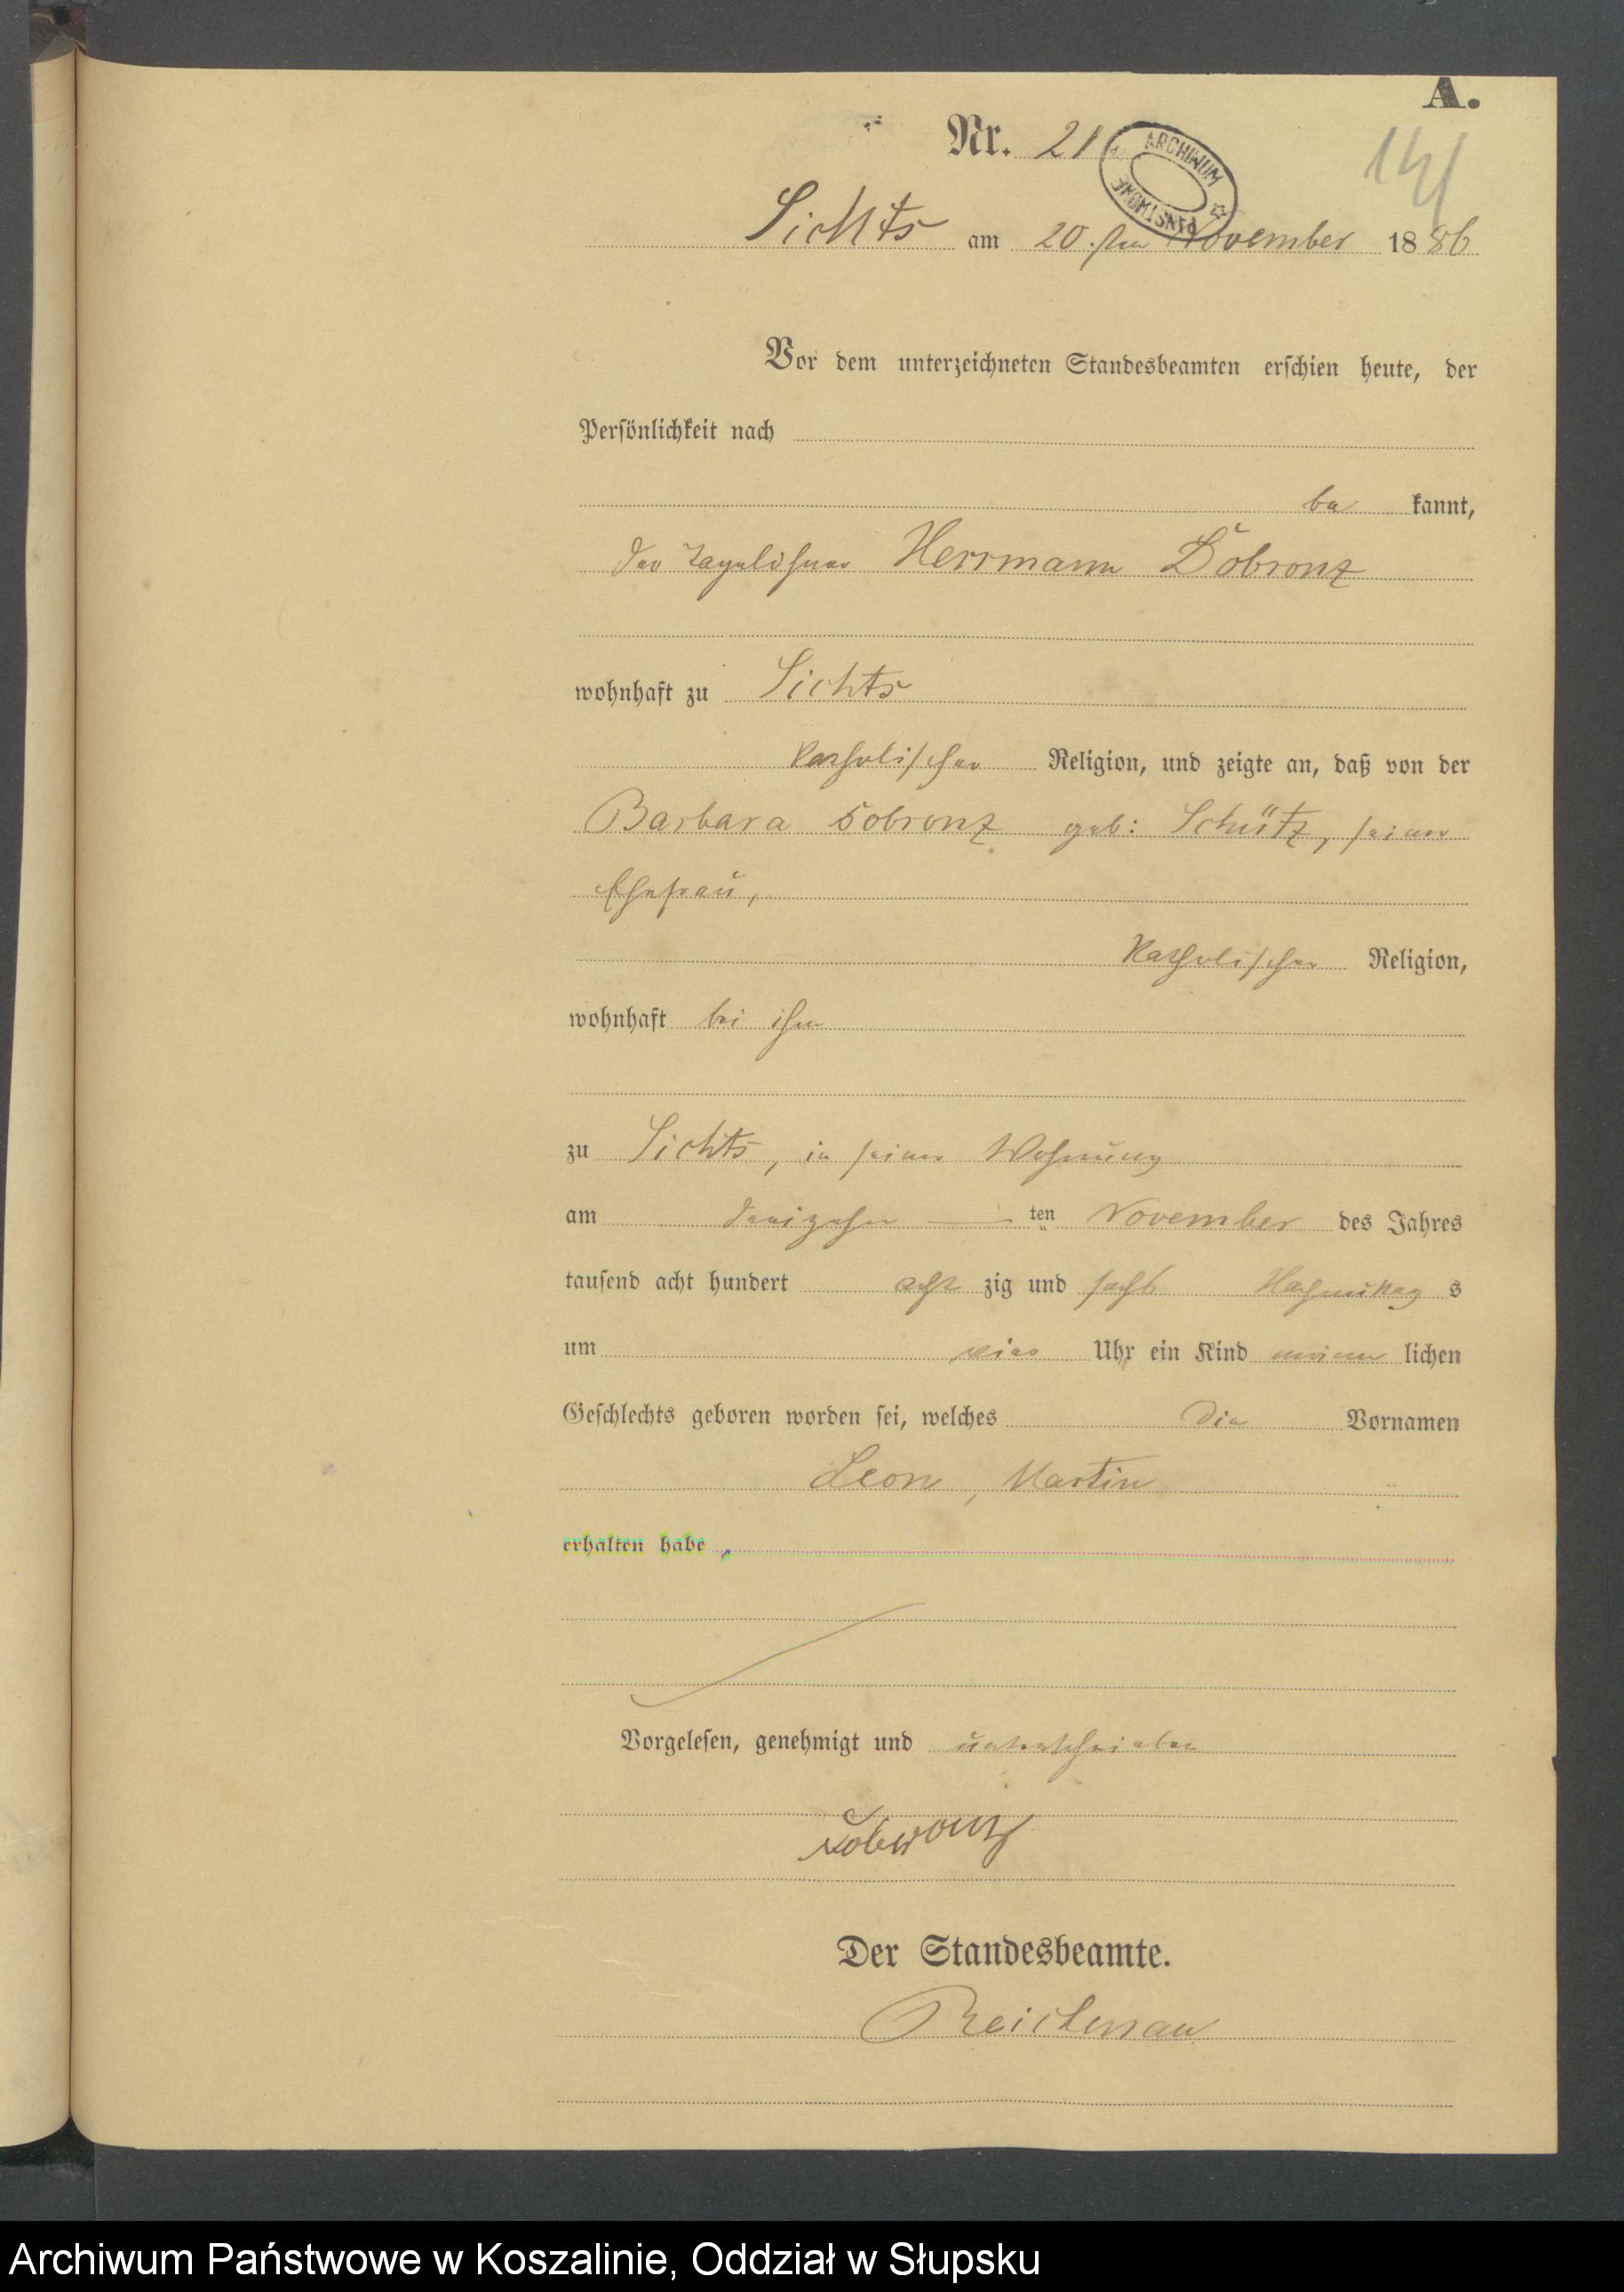 A.
Nr. 21
141
ARCHIWUM PAŃSTWOWE
Sichts am 20. ten November 1886
Vor dem unterzeichneten Standesbeamten erschien heute, der
Persönlichkeit nach
be kannt,
der Tagelöhner Herrmann Dobronz
wohnhaft zu Sichts
katholischer Religion, und zeigte an, daß von der
Barbara Dobronz geb: Schütz, seiner
Ehefrau,
katholischer Religion,
wohnhaft bei ihm
zu Sichts, in seiner Wohnung
am dreizehn ten November des Jahres
tausend acht hundert acht zig und sechs Nachmittag s
um vier Uhr ein Kind männ lichen
Geschlechts geboren worden sei, welches die Vornamen
Leon, Martin
erhalten habe,
Vorgelesen, genehmigt und unterschrieben
Der Standesbeamte.
Reichenau
Archiwum Państwowe w Koszalinie, Oddział w Słupsku